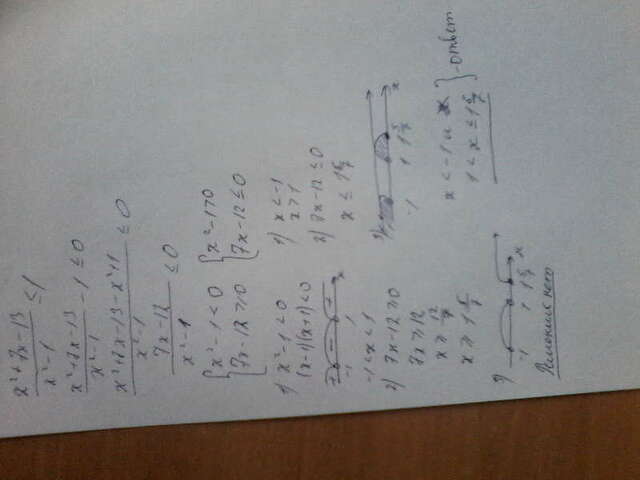 x²+7x-13 / x²-1 ≤ 1
x²+7x-13 / x²-1 - 1 ≤ 0
x²+7x-13-x²+1 / x²-1 ≤ 0
7x-12 / x²-1 ≤ 0
{ x²-1<0
7x-12≥0
1) x²-1<0
(x-1)(x+1)<0
+ - +
-1 1 x
-1<x<1
2) 7x-12≥0
7x≥12
x≥ 12/7
x≥1 5/7
3)
-1 1 1 5/7 x
Решений нет
{ x²-1>0
7x-12≤0
1) x<-1
x>1
2) 7x-12≤0
x≤1 5/7
3)
-1 1 1 5/7 x
x<-1 и
1<x≤1 5/7 } -ответ